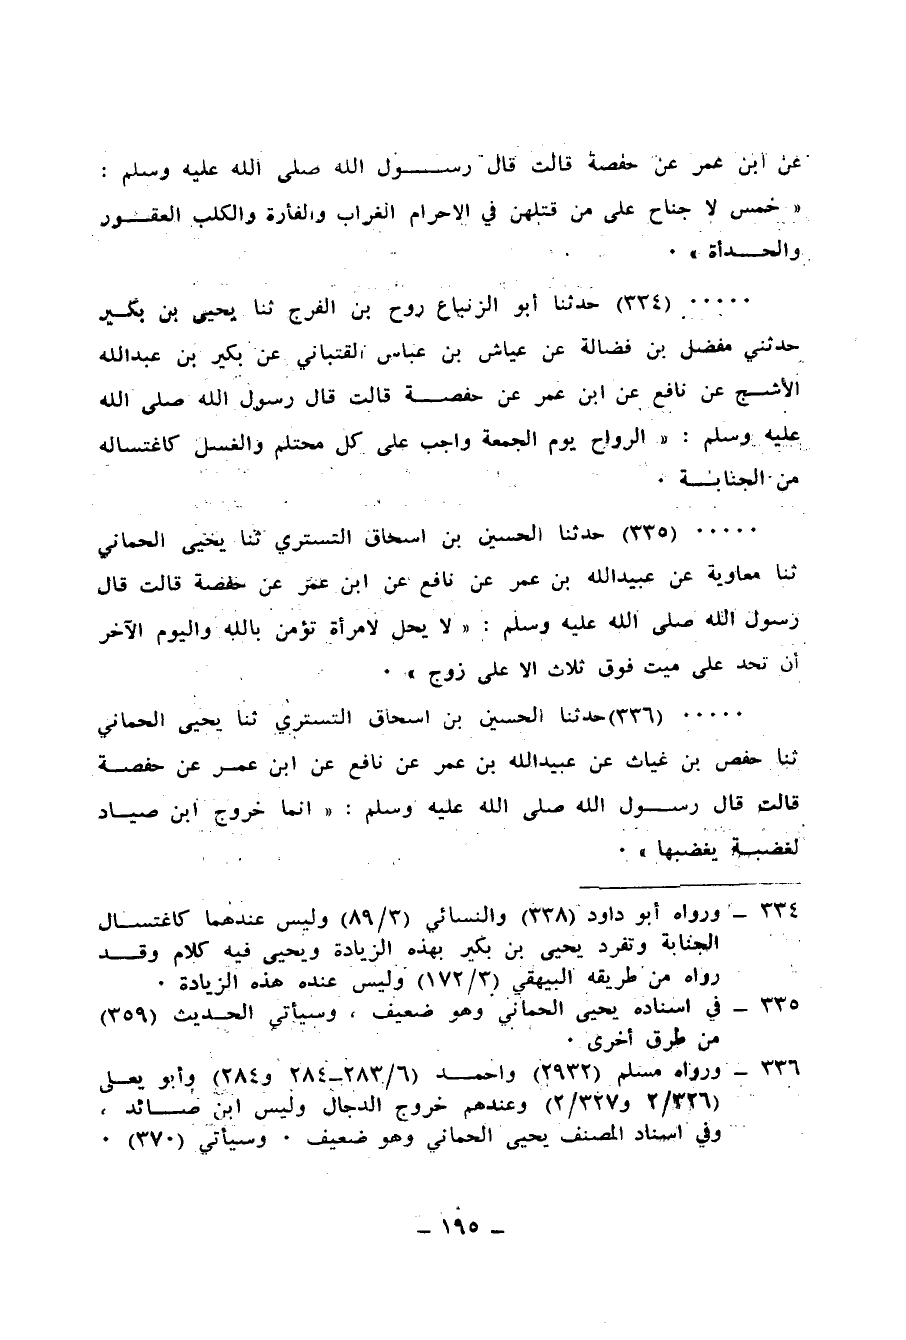 عن ابن عمر عن حفصة قالت قال رســـول الله صلى الله عليه وسلم :
« خمس لا جناح على من قتلهن في الاحرام الغراب والفأرة والكلب العقــور
والحـــدأة » ٠
٠٠٠٠٠ (٣٣٤) حدثنا أبو الزنباع روح بن الفرج ثنا يحيى بن بكــير
حدثني مفضل بن فضالة عن عياش بن عباس القتباني عن بكير بن عبدالله
الأشــج عن نافع عن ابن عمر عن حفصـــة قالت قال رسول الله صلى الله
عليه وسلم : « الرواح يوم الجمعة واجب على كل محتلم والغسل كاغتساله
من الجنابــة ٠
٠٠٠٠٠ (٣٣٥) حدثنا الحسين بن اسحاق التستري ثنا يحيى الحماني
ثنا معاوية عن عبيدالله بن عمر عن نافع عن ابن عمر عن حفصة قالت قال
رسول الله صلى الله عليه وسلم : « لا يحل لامرأة تؤمن بالله واليوم الآخر
أن تحد على ميت فوق ثلاث الا على زوج » ٠
٠٠٠٠٠ (٣٣٦)حدثنا الحسين بن اسحاق التستري ثنا يحيى الحماني
ثنا حفص بن غياث عن عبيدالله بن عمر عن نافع عن ابن عمــر عن حفصــة
قالت قال رســـول الله صلى الله عليه وسلم : « انما خروج ابن صيــاد
لغضبــة يغضبها » ٠
٣٣٤ ـ ورواه أبو داود (٣٣٨) والنسائي (٨٩/٣) وليس عندهما كاغتســال
الجنابة وتفرد يحيى بن بكير بهذه الزيادة ويحيى فيه كلام وقــد
رواه من طريقه البيهقي (١٧٢/٣) وليس عنده هذه الزيادة ٠
٣٣٥ ـ في اسناده يحيى الحماني وهو ضعيف ، وسيأتي الحــديث (٣٥٩)
من طرق أخرى ٠
٣٣٦ ـ ورواه مسلم (٢٩٣٢) واحمـــد (٢٨٣/٦ـ٢٨٤ و٢٨٤) وأبو يعــلى
(٢/٣٢٦ و٢/٣٢٧) وعندهم خروج الدجال وليس ابن صـــائد ،
وفي اسناد المصنف يحيى الحماني وهو ضعيف ٠ وسيأتي (٣٧٠) ٠
ـ ١٩٥ ـ